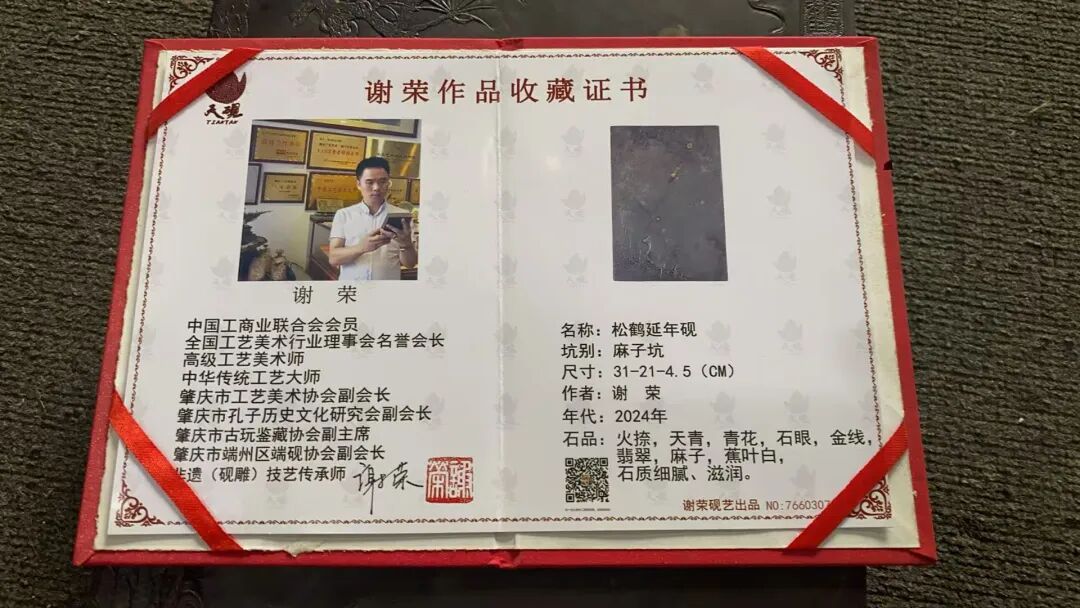 谢荣作品收藏证书
天砚
TIANYAN
谢 荣
中国工商业联合会会员
全国工艺美术行业理事会名誉会长
高级工艺美术师
中华传统工艺大师
肇庆市工艺美术协会副会长
肇庆市孔子历史文化研究会副会长
肇庆市古玩鉴藏协会副主席
肇庆市端州区端砚协会副会长
非遗（砚雕）技艺传承师
谢荣
名称：松鹤延年砚
坑别：麻子坑
尺寸：31-21-4.5（CM）
作者：谢 荣
年代：2024年
石品：火捺，天青，青花，石眼，金线，
翡翠，麻子，蕉叶白，
石质细腻、滋润。
谢荣砚艺出品 NO:766030